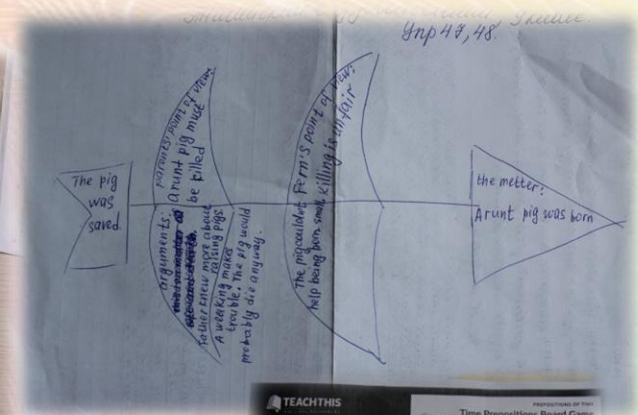 Упр 47, 48.
The pig
was
saved.
parents' point of view:
A runt pig must
be killed
arguments:
Father knew more about
raising pigs.
A weakling makes
trouble. The pig would
probably die anyway.
Fern's point of view:
killing is unfair
The pig couldn't
help being born small
the metter:
A runt pig was born
TEACHTHIS
PREPOSITIONS OF TIME
Time Prepositions Board Game